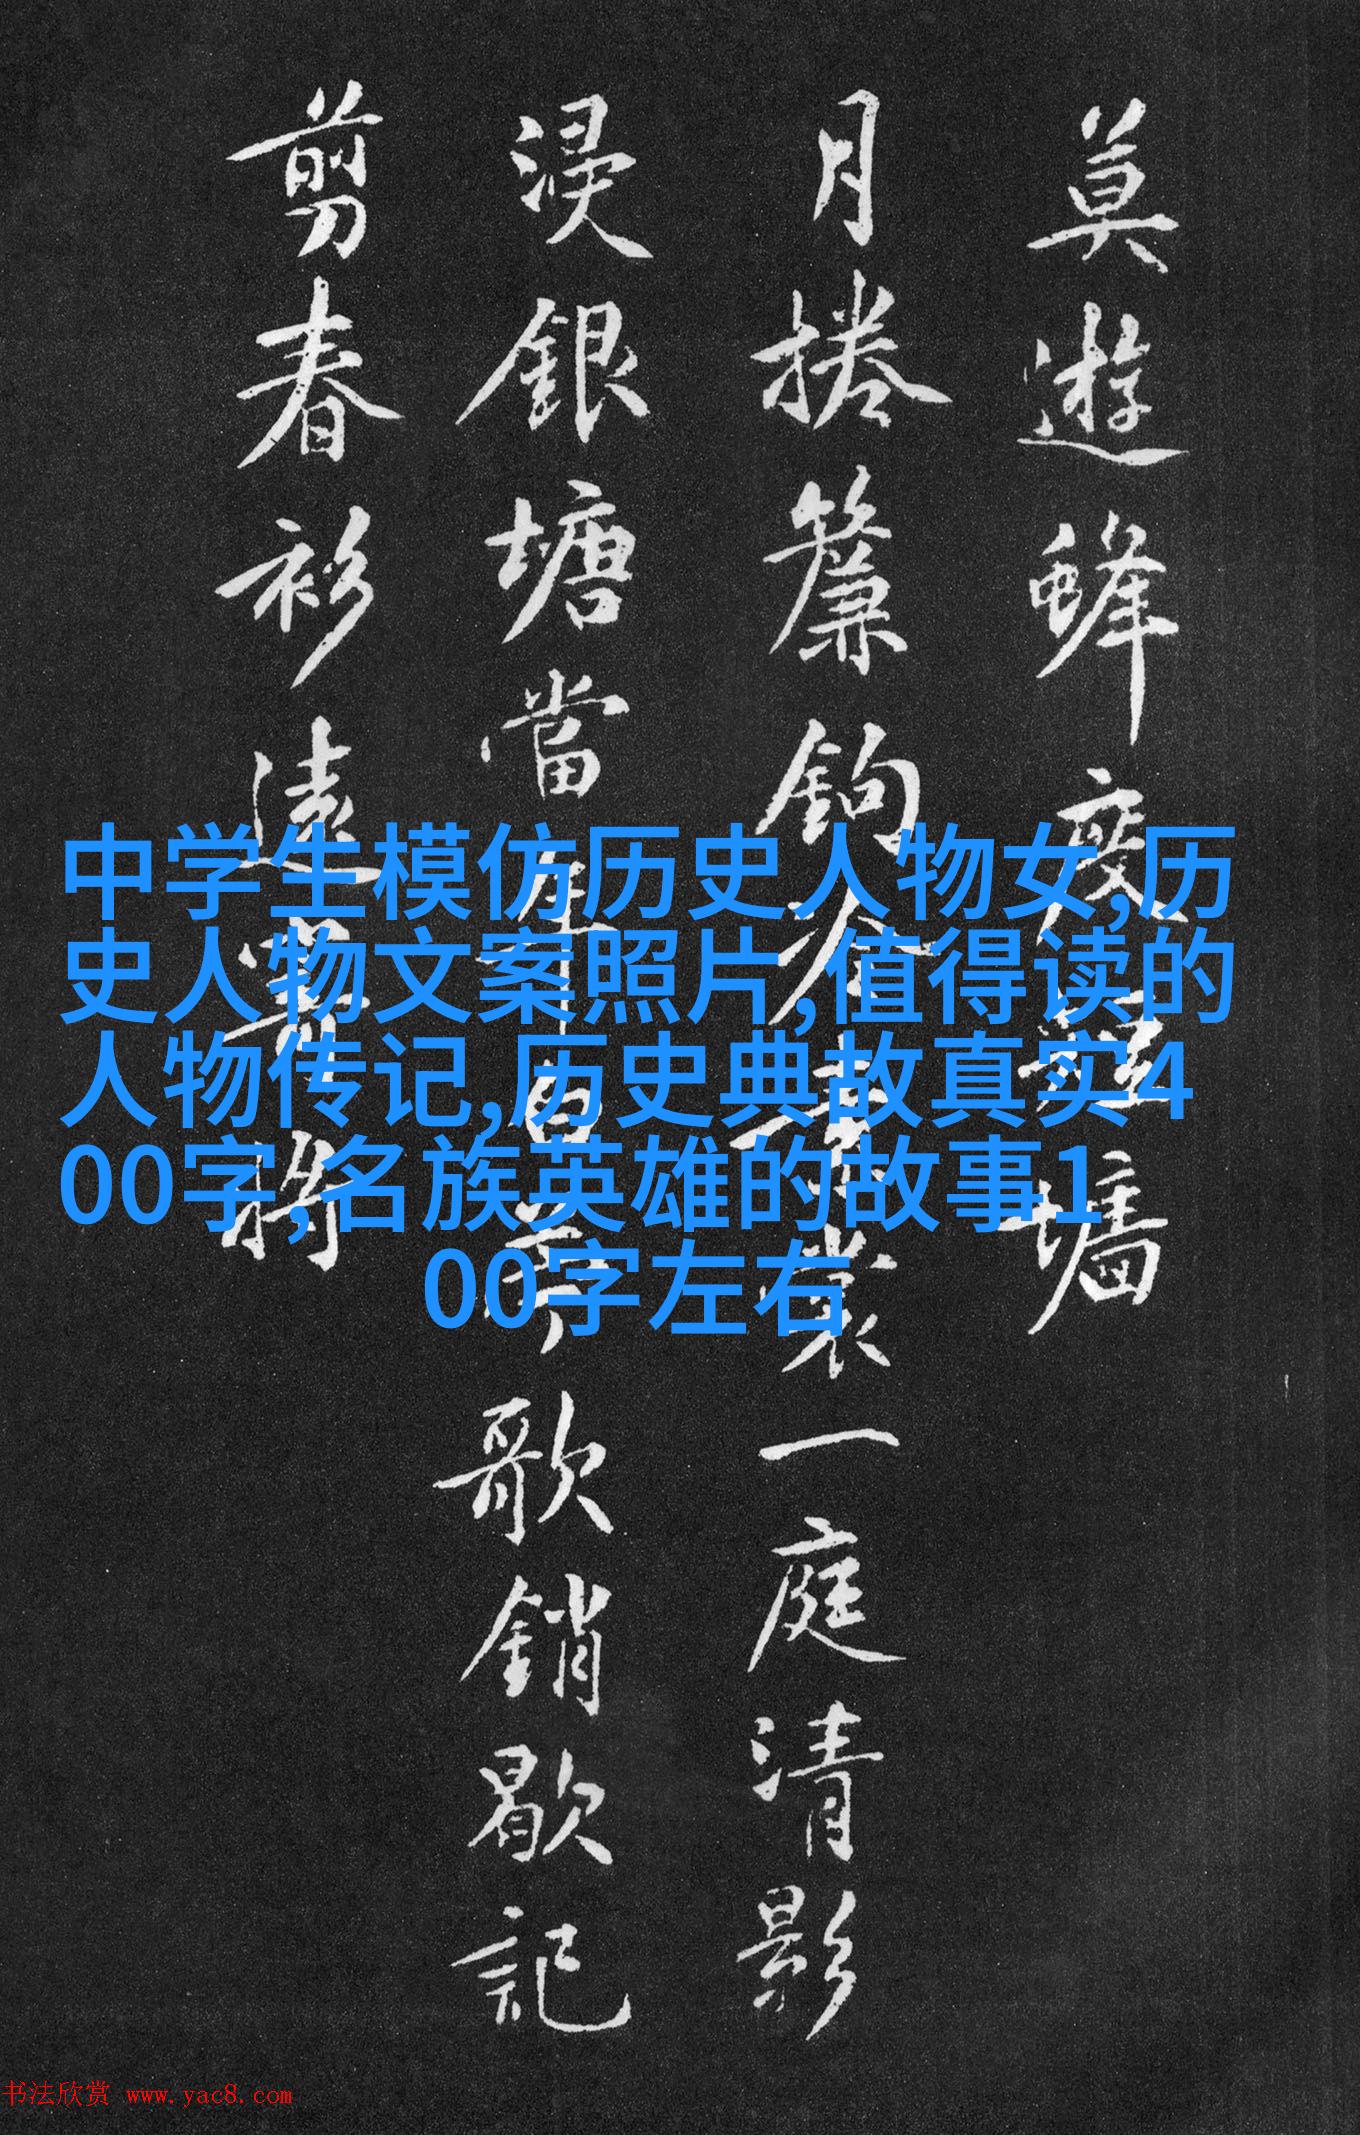 中学生模仿历史人物女,历
史人物文案照片,值得读的
人物传记,历史典故真实4
00字,名族英雄的故事1
00字左右
莫遊蜂度墻
月捲簾鉤裳一庭清影
浸銀塘當年白苧歌銷歇記
剪春衫遠寄將
书法欣赏 www.yac8.com